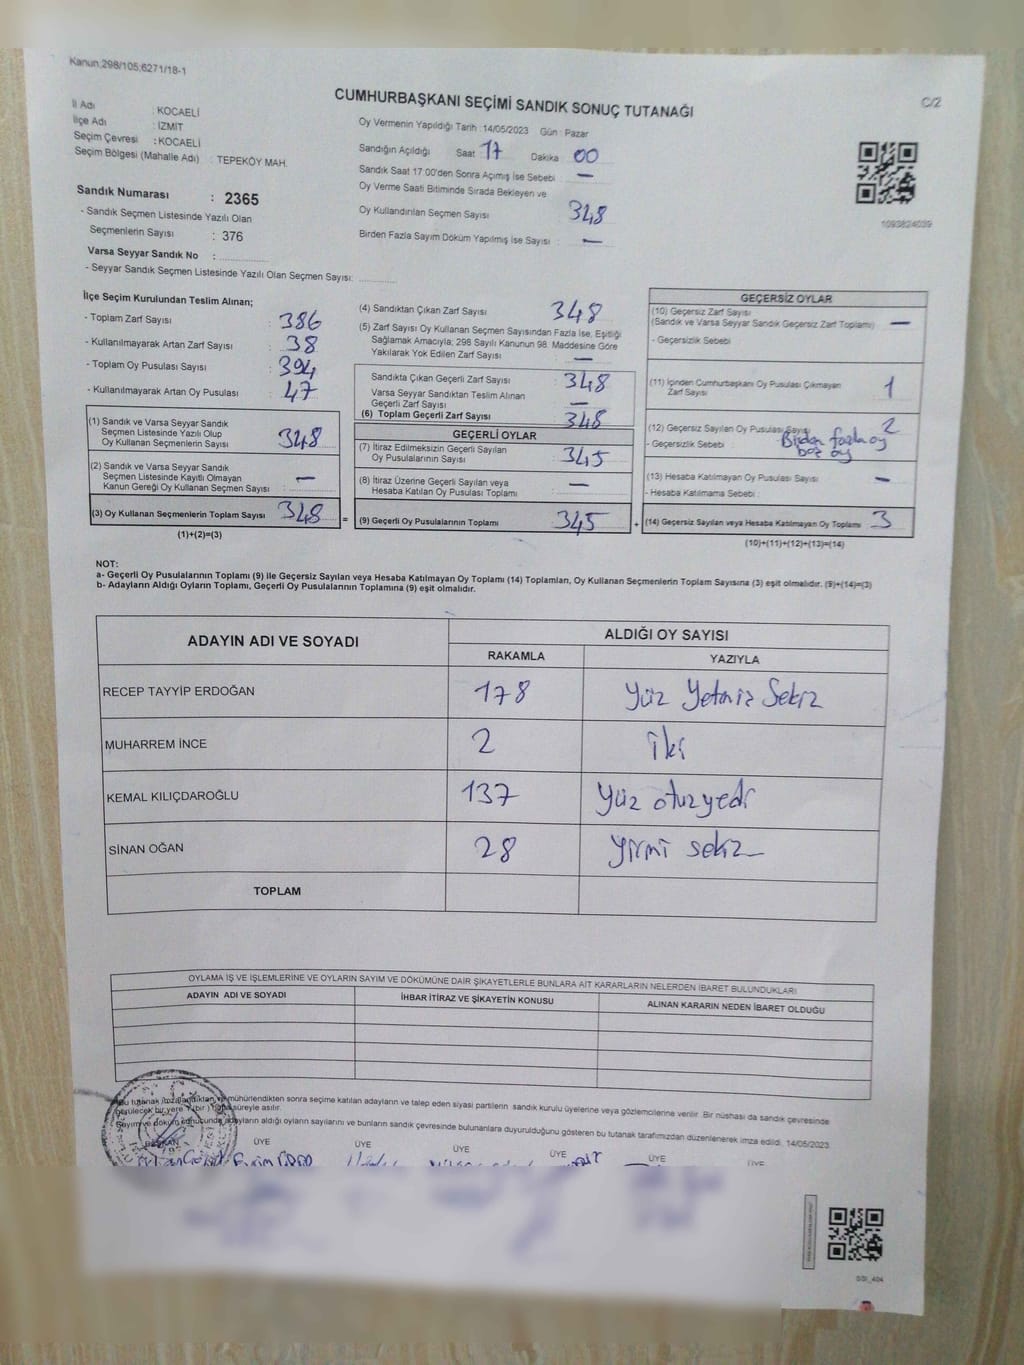 Kanun;298/105;6271/18-1
CUMHURBAŞKANI SEÇİMİ SANDIK SONUÇ TUTANAĞI
C/2
İl Adı : KOCAELİ
İlçe Adı : İZMİT
Seçim Çevresi : KOCAELİ
Seçim Bölgesi (Mahalle Adı) : TEPEKÖY MAH.
Sandık Numarası : 2365
- Sandık Seçmen Listesinde Yazılı Olan
Seçmenlerin Sayısı : 376
Varsa Seyyar Sandık No :
- Seyyar Sandık Seçmen Listesinde Yazılı Olan Seçmen Sayısı:
Oy Vermenin Yapıldığı Tarih :14/05/2023 Gün : Pazar
Sandığın Açıldığı Saat 17 Dakika 00
Sandık Saat 17.00'den Sonra Açımış İse Sebebi : —
Oy Verme Saati Bitiminde Sırada Bekleyen ve
Oy Kullandırılan Seçmen Sayısı 348
Birden Fazla Sayım Döküm Yapılmış İse Sayısı : —
1093824039
İlçe Seçim Kurulundan Teslim Alınan;
- Toplam Zarf Sayısı : 386
- Kullanılmayarak Artan Zarf Sayısı : 38
- Toplam Oy Pusulası Sayısı : 394
- Kullanılmayarak Artan Oy Pusulası : 47
(1) Sandık ve Varsa Seyyar Sandık
Seçmen Listesinde Yazılı Olup
Oy Kullanan Seçmenlerin Sayısı : 348
(2) Sandık ve Varsa Seyyar Sandık
Seçmen Listesinde Kayıtlı Olmayan
Kanun Gereği Oy Kullanan Seçmen Sayısı : —
(3) Oy Kullanan Seçmenlerin Toplam Sayısı 348 =
(1)+(2)=(3)
(4) Sandıktan Çıkan Zarf Sayısı 348
(5) Zarf Sayısı Oy Kullanan Seçmen Sayısından Fazla İse, Eşitliği
Sağlamak Amacıyla; 298 Sayılı Kanunun 98. Maddesine Göre
Yakılarak Yok Edilen Zarf Sayısı : —
Sandıkta Çıkan Geçerli Zarf Sayısı : 348
Varsa Seyyar Sandıktan Teslim Alınan
Geçerli Zarf Sayısı : —
(6) Toplam Geçerli Zarf Sayısı : 348
GEÇERLİ OYLAR
(7) İtiraz Edilmeksizin Geçerli Sayılan
Oy Pusulalarının Sayısı : 345
(8) İtiraz Üzerine Geçerli Sayılan veya
Hesaba Katılan Oy Pusulası Toplamı : —
(9) Geçerli Oy Pusulalarının Toplamı : 345 +
GEÇERSİZ OYLAR
(10) Geçersiz Zarf Sayısı
(Sandık ve Varsa Seyyar Sandık Geçersiz Zarf Toplamı) : —
- Geçersizlik Sebebi
(11) İçinden Cumhurbaşkanı Oy Pusulası Çıkmayan
Zarf Sayısı : 1
(12) Geçersiz Sayılan Oy Pusulası Sayısı 2
- Geçersizlik Sebebi Birden fazla oy
boş oy
(13) Hesaba Katılmayan Oy Pusulası Sayısı : —
- Hesaba Katılmama Sebebi :
(14) Geçersiz Sayılan veya Hesaba Katılmayan Oy Toplamı 3
(10)+(11)+(12)+(13)=(14)
NOT:
a- Geçerli Oy Pusulalarının Toplamı (9) ile Geçersiz Sayılan veya Hesaba Katılmayan Oy Toplamı (14) Toplamları, Oy Kullanan Seçmenlerin Toplam Sayısına (3) eşit olmalıdır. (9)+(14)=(3)
b- Adayların Aldığı Oyların Toplamı, Geçerli Oy Pusulalarının Toplamına (9) eşit olmalıdır.
ADAYIN ADI VE SOYADI ALDIĞI OY SAYISI
RAKAMLA YAZIYLA
RECEP TAYYİP ERDOĞAN 178 Yüz Yetmiz Sekiz
MUHARREM İNCE 2 iki
KEMAL KILIÇDAROĞLU 137 Yüz otuzyedi
SİNAN OĞAN 28 Yirmi sekiz
TOPLAM
OYLAMA İŞ VE İŞLEMLERİNE VE OYLARIN SAYIM VE DÖKÜMÜNE DAİR ŞİKAYETLERLE BUNLARA AİT KARARLARIN NELERDEN İBARET BULUNDUKLARI
ADAYIN ADI VE SOYADI İHBAR İTİRAZ VE ŞİKAYETİN KONUSU ALINAN KARARIN NEDEN İBARET OLDUĞU
Bu tutanak mühürlendikten sonra seçime katılan adayların ve talep eden siyasi partilerin sandık kurulu üyelerine veya gözlemcilerine verilir. Bir nüshası da sandık çevresinde
görülecek bir yere 1 (bir) süreyle asılır.
Sayım ve döküm sonucunda adayların aldığı oyların sayılarını ve bunların sandık çevresinde bulunanlara duyurulduğunu gösteren bu tutanak tarafımızdan düzenlenerek imza edildi. 14/05/2023
BAŞKAN ÜYE ÜYE ÜYE ÜYE ÜYE ÜYE
SSI_404